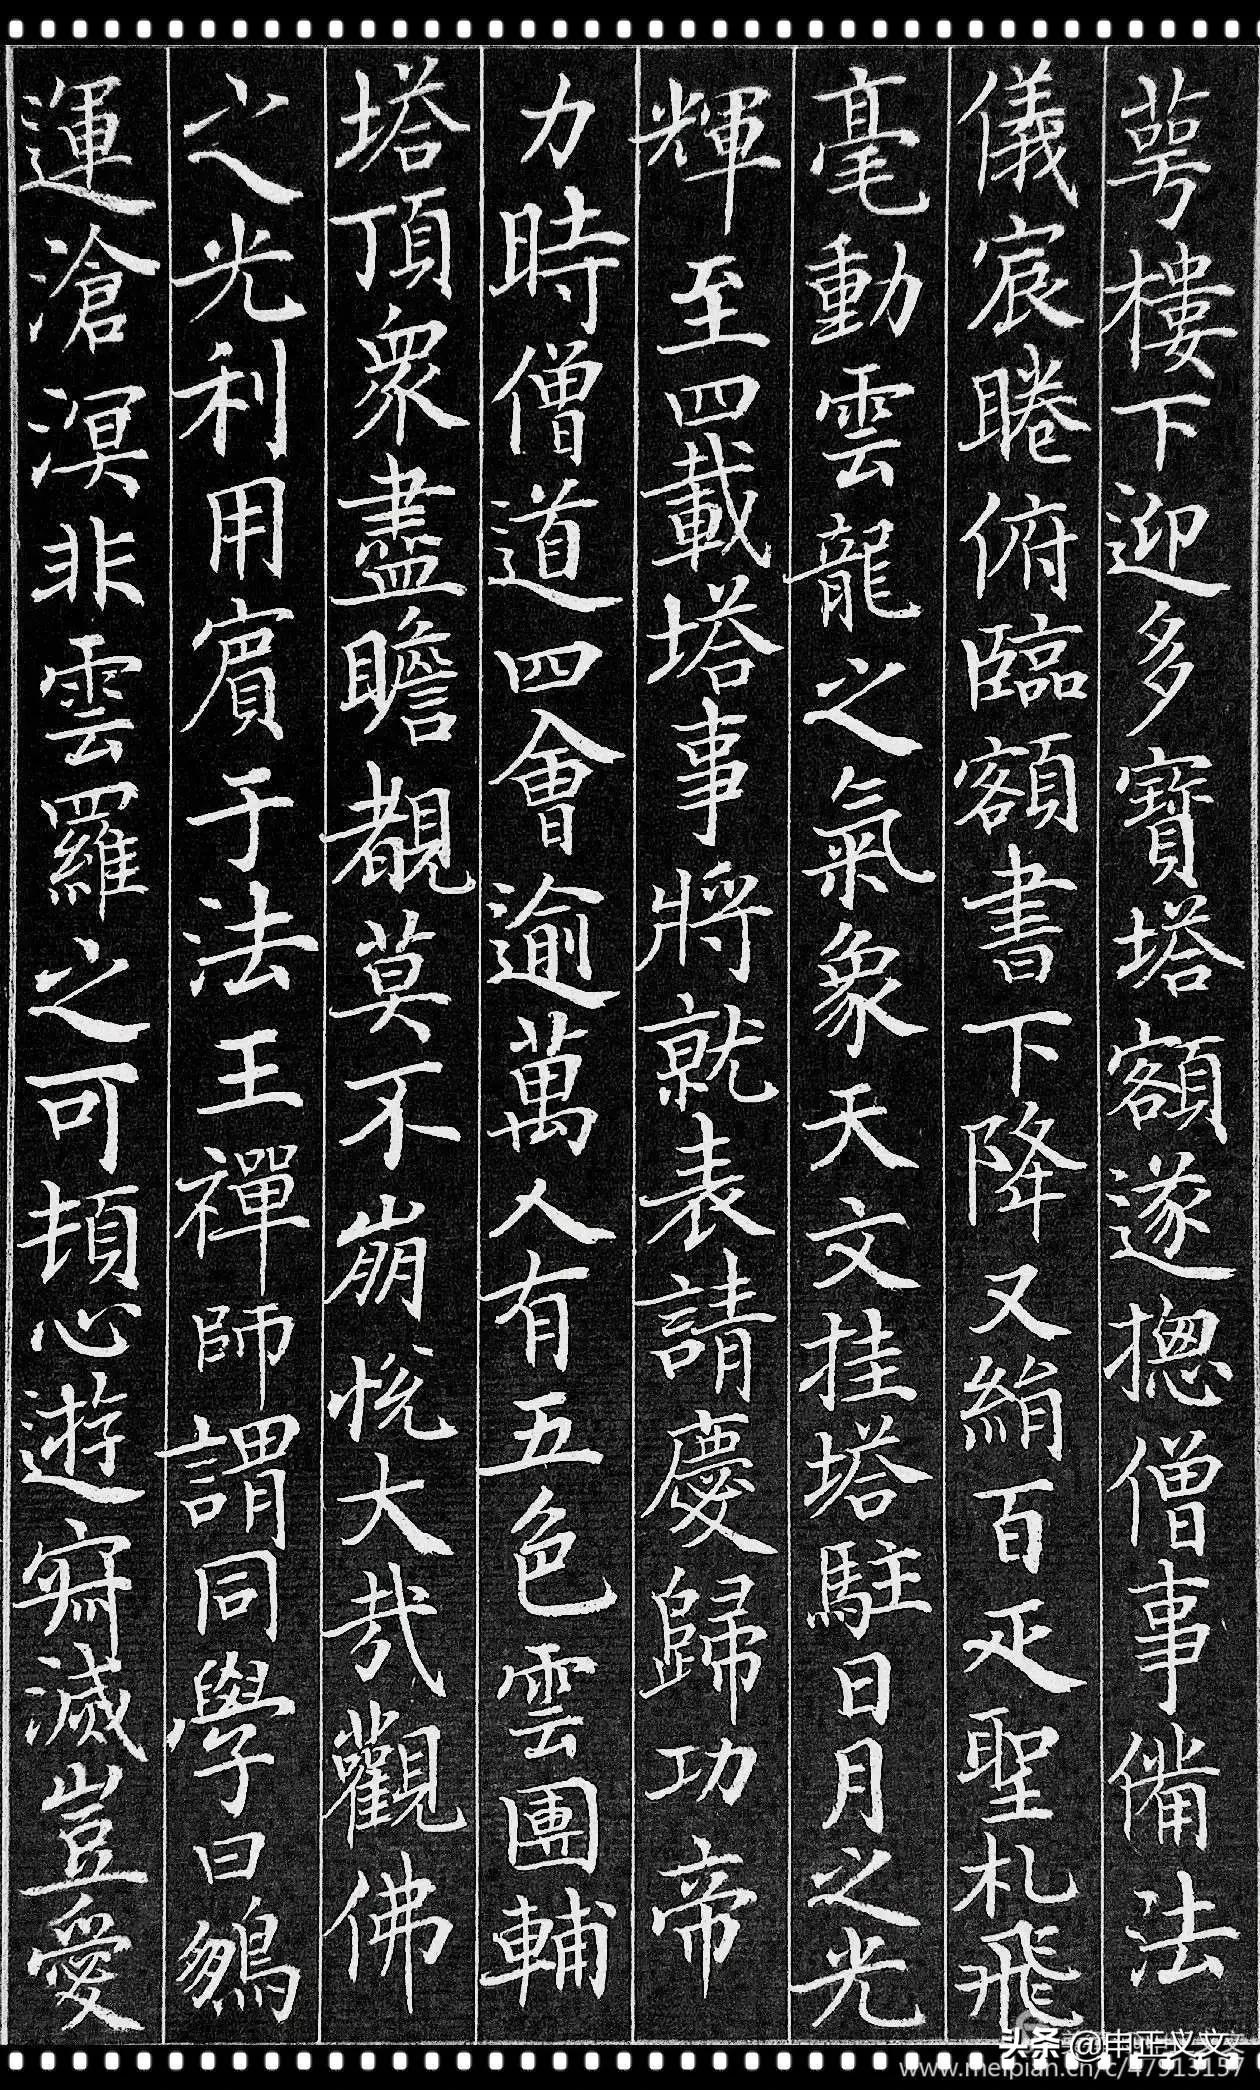 萼樓下迎多寶塔額遂摠僧事備法
儀宸睠俯臨額書下降又絹百疋聖札飛
毫動雲龍之氣象天文挂塔駐日月之光
輝至四載塔事將就表請慶歸功帝
力時僧道四會逾萬人有五色雲團輔
塔頂眾盡瞻覩莫不崩悅大哉觀佛
之光利用賓于法王禪師謂同學曰鵷
運滄溟非雲羅之可頓心遊寂滅豈愛
头条@申正义文
www.meipian.cn/c/47913157